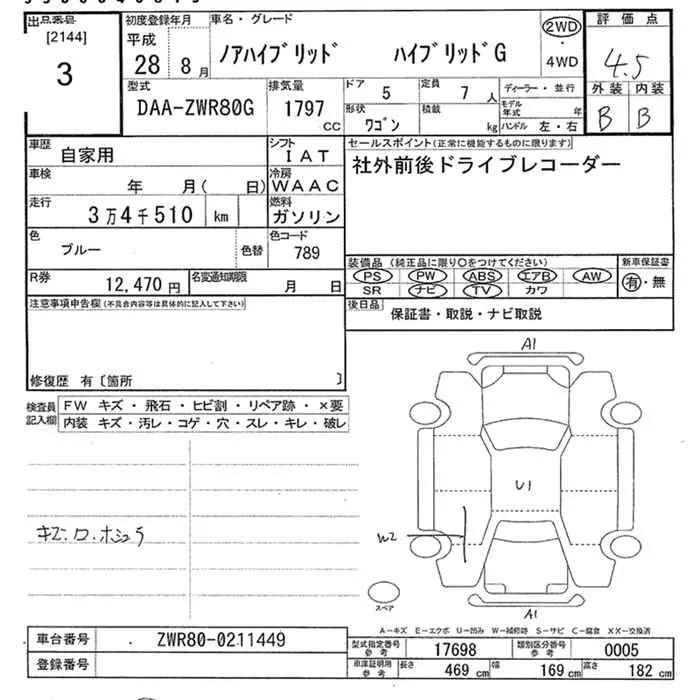 出品番号 初度登録年月 車名・グレード 評価点
[2144] 平成 ノアハイブリッド ハイブリッドG 2WD・4WD 4.5
3 28 8月
型式 排気量 ドア 5 定員 7人 ディーラー・並行 外装 内装
DAA-ZWR80G 1797 cc 形状 ワゴン 積載 kg モデル年式 年 ハンドル 左・右 B B
車歴 自家用 シフト IAT セールスポイント(正常に機能するものに限ります)
車検 年 月( 日) 冷房 WAAC 社外前後ドライブレコーダー
走行 3万4千510 km 燃料 ガソリン
色 ブルー 色替 色コード 789
装備品(純正品に限り○をつけてください) 新車保証書
R券 12,470円 名変通知期限 月 日 PS PW ABS エアB AW 有・無
SR ナビ TV カワ
注意事項申告欄(不具合内容等は具体的に記入して下さい) 後日品 保証書・取説・ナビ取説
修復歴 有〔箇所 〕
検査員記入欄 FW キズ・飛石・ヒビ割・リペア跡・×要
内装 キズ・汚レ・コゲ・穴・スレ・キレ・破レ
A1
U1
W2
スペア
A1
A-キズ E-エクボ U-凹み W-補修跡 S-サビ C-腐食 XX-交換済
車台番号 ZWR80-0211449 型式指定番号参考 17698 類別区分番号参考 0005
登録番号 車庫証明用参考 長さ 469cm 幅 169cm 高さ 182cm